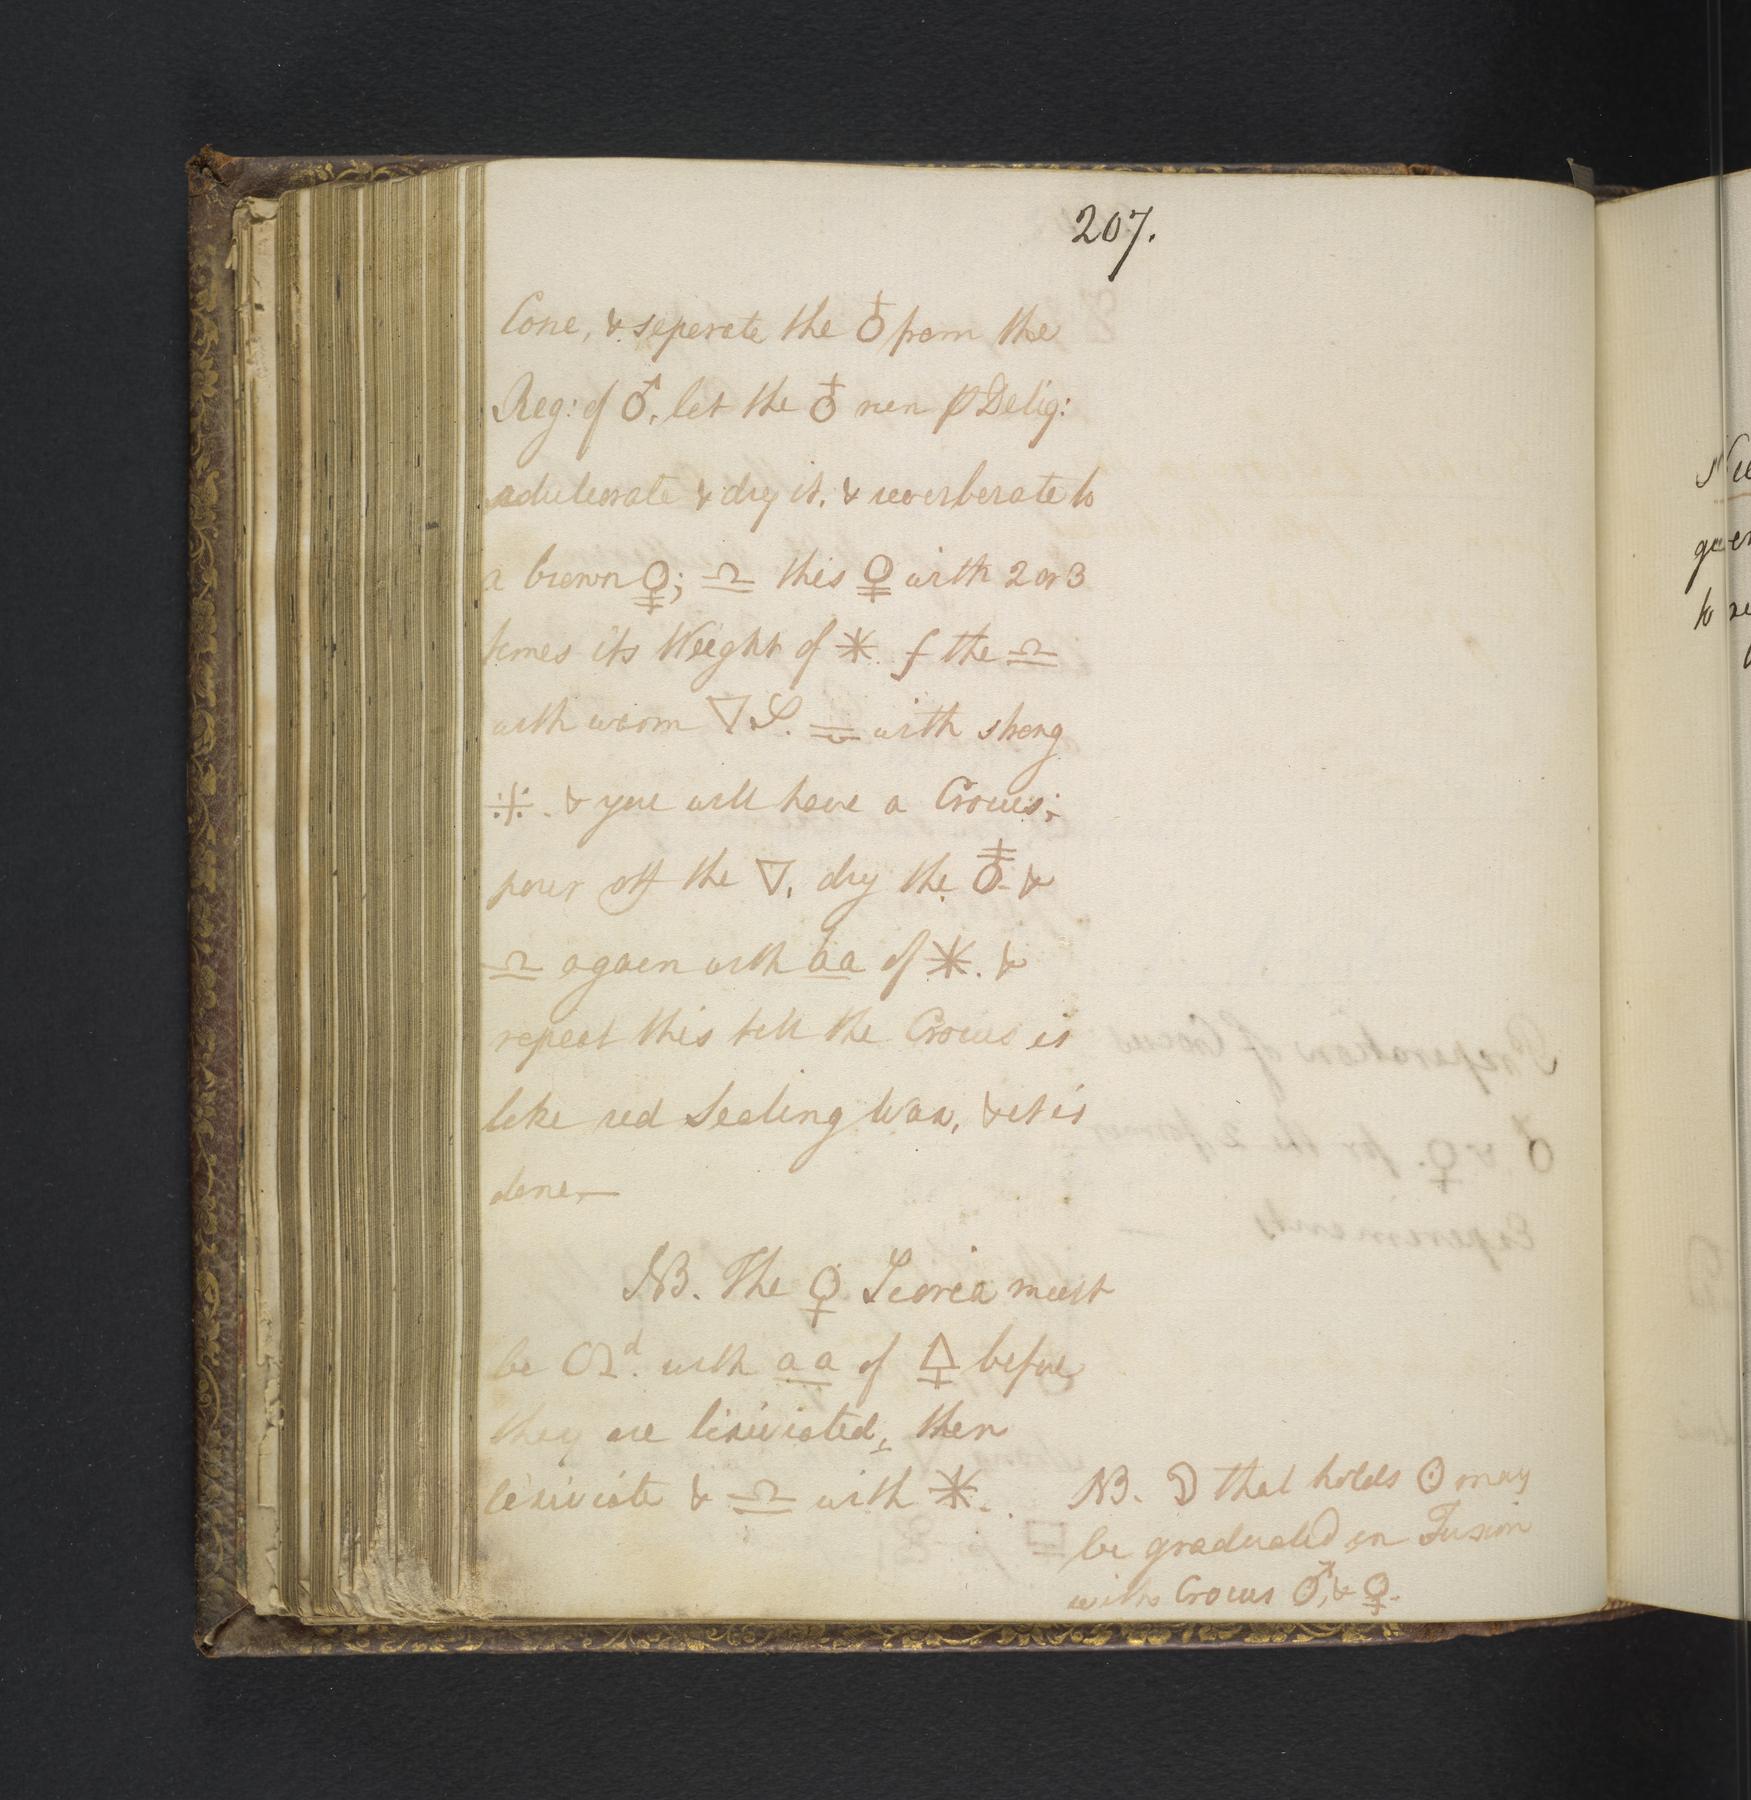 207.
Cone, & seperate the ♁ from the
Reg: of ♂. let the ♁ run ꝑ Deliq:
adulcorate & dry it. & reverberate to
a brown ♀; ♎ this ♀ with 2 or 3
times its Weight of ✱. f the ♎
with warm ▽ S. with strong
⁜. & you will have a Crocus;
pour off the ▽. dry the ♁. &
♎ again with aa of ✱. &
repeat this till the Crocus is
like red Sealing Wax, & it is
done.—
NB. The ♀ Scorea must
be d. with aa of 🜍 before
they are lixiviated, then
lixiviate & ♎ with ✱.
NB. ☽ that holds ☉ may
be graduated in Fusion
with Crocus ♂, & ♀.